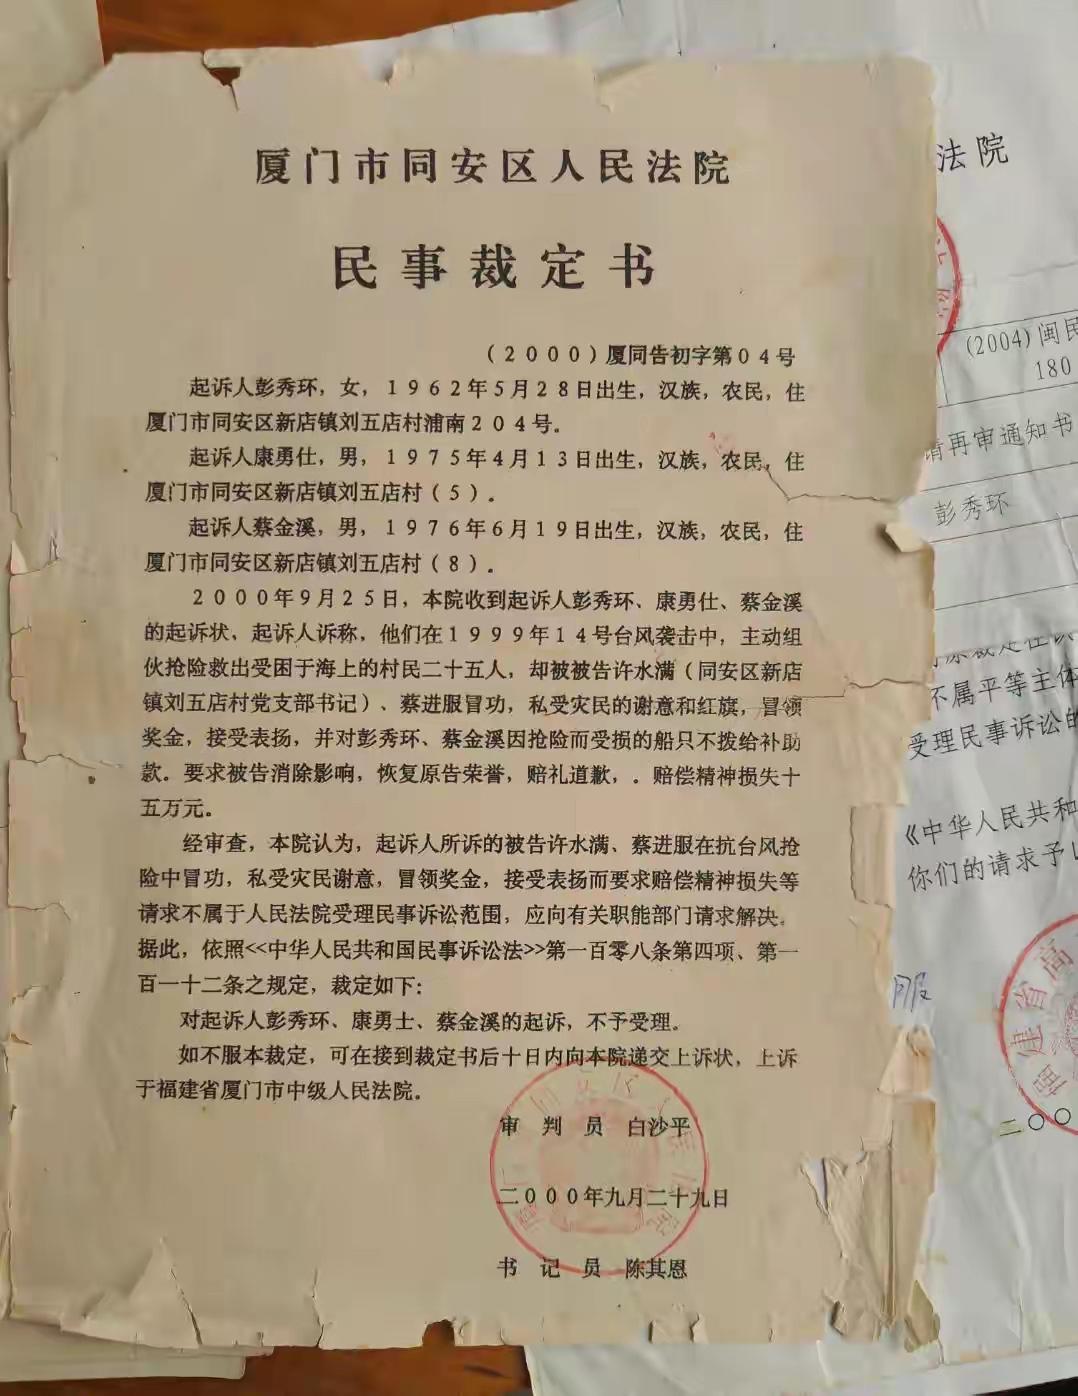 厦门市同安区人民法院
民事裁定书
（２０００）厦同告初字第０４号
起诉人彭秀环，女，１９６２年５月２８日出生，汉族，农民，住
厦门市同安区新店镇刘五店村浦南２０４号。
起诉人康勇仕，男，１９７５年４月１３日出生，汉族，农民，住
厦门市同安区新店镇刘五店村（５）。
起诉人蔡金溪，男，１９７６年６月１９日出生，汉族，农民，住
厦门市同安区新店镇刘五店村（８）。
２０００年９月２５日，本院收到起诉人彭秀环、康勇仕、蔡金溪
的起诉状，起诉人诉称，他们在１９９９年１４号台风袭击中，主动组
伙抢险救出受困于海上的村民二十五人，却被被告许水满（同安区新店
镇刘五店村党支部书记）、蔡进服冒功，私受灾民的谢意和红旗，冒领
奖金，接受表扬，并对彭秀环、蔡金溪因抢险而受损的船只不拨给补助
款。要求被告消除影响，恢复原告荣誉，赔礼道歉，．赔偿精神损失十
五万元。
经审查，本院认为，起诉人所诉的被告许水满、蔡进服在抗台风抢
险中冒功，私受灾民谢意，冒领奖金，接受表扬而要求赔偿精神损失等
请求不属于人民法院受理民事诉讼范围，应向有关职能部门请求解决。
据此，依照<<中华人民共和国民事诉讼法>>第一百零八条第四项、第一
百一十二条之规定，裁定如下：
对起诉人彭秀环、康勇士、蔡金溪的起诉，不予受理。
如不服本裁定，可在接到裁定书后十日内向本院递交上诉状，上诉
于福建省厦门市中级人民法院。
审 判 员 白沙平
二０００年九月二十九日
书 记 员 陈其恩
法院
(2004)闽民
180
请再审通知书
彭秀环
不属平等主体
受理民事诉讼的
《中华人民共和
你们的请求予以
福建省高
二〇〇